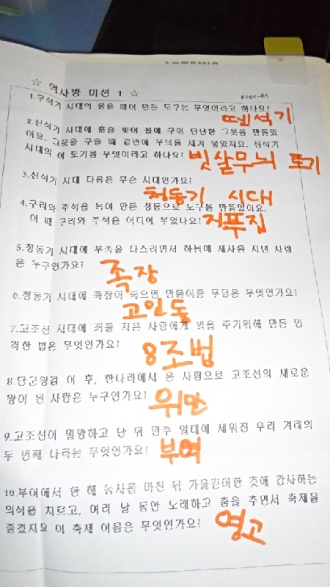 ☆ 역사랑 미션 1 ☆
1.구석기 시대의 돌을 떼어 만든 도구는 무엇이라고 하나요?
뗀석기
2.신석기 시대에 흙을 빚어 불에 구워 단단한 그릇을 만들었
어요. 그릇을 구울 때 겉면에 무늬를 새기기도 했지요. 신석기
시대의 이 토기를 무엇이라고 하나요?
빗살무늬 토기
3.신석기 시대 다음은 무슨 시대인가요?
청동기 시대
4.구리와 주석을 녹여 만든 청동으로 도구를 만들었어요.
이 때 구리와 주석을 어디에 부었나요?
거푸집
5.청동기 시대에 부족을 다스리면서 하늘에 제사를 지낸 사람
은 누구인가요?
족장
6.청동기 시대에 족장이 죽으면 만들어준 무덤은 무엇인가요?
고인돌
7.고조선 시대에 죄를 지은 사람에게 벌을 주기위해 만든 엄
격한 법은 무엇인가요?
8조법
8.단군왕검 이 후, 한나라에서 온 사람으로 고조선의 새로운
왕이 된 사람은 누구인가요?
위만
9.고조선이 멸망하고 난 뒤 만주 일대에 세워진 우리 겨레의
두 번째 나라는 무엇인가요?
부여
10.부여에서 한 해 농사를 마친 뒤 가을걷이한 것에 감사하는
의식을 치르고, 여러 날 동안 노래하고 춤을 추면서 축제를
즐겼지요 이 축제 이름은 무엇인가요?
영고